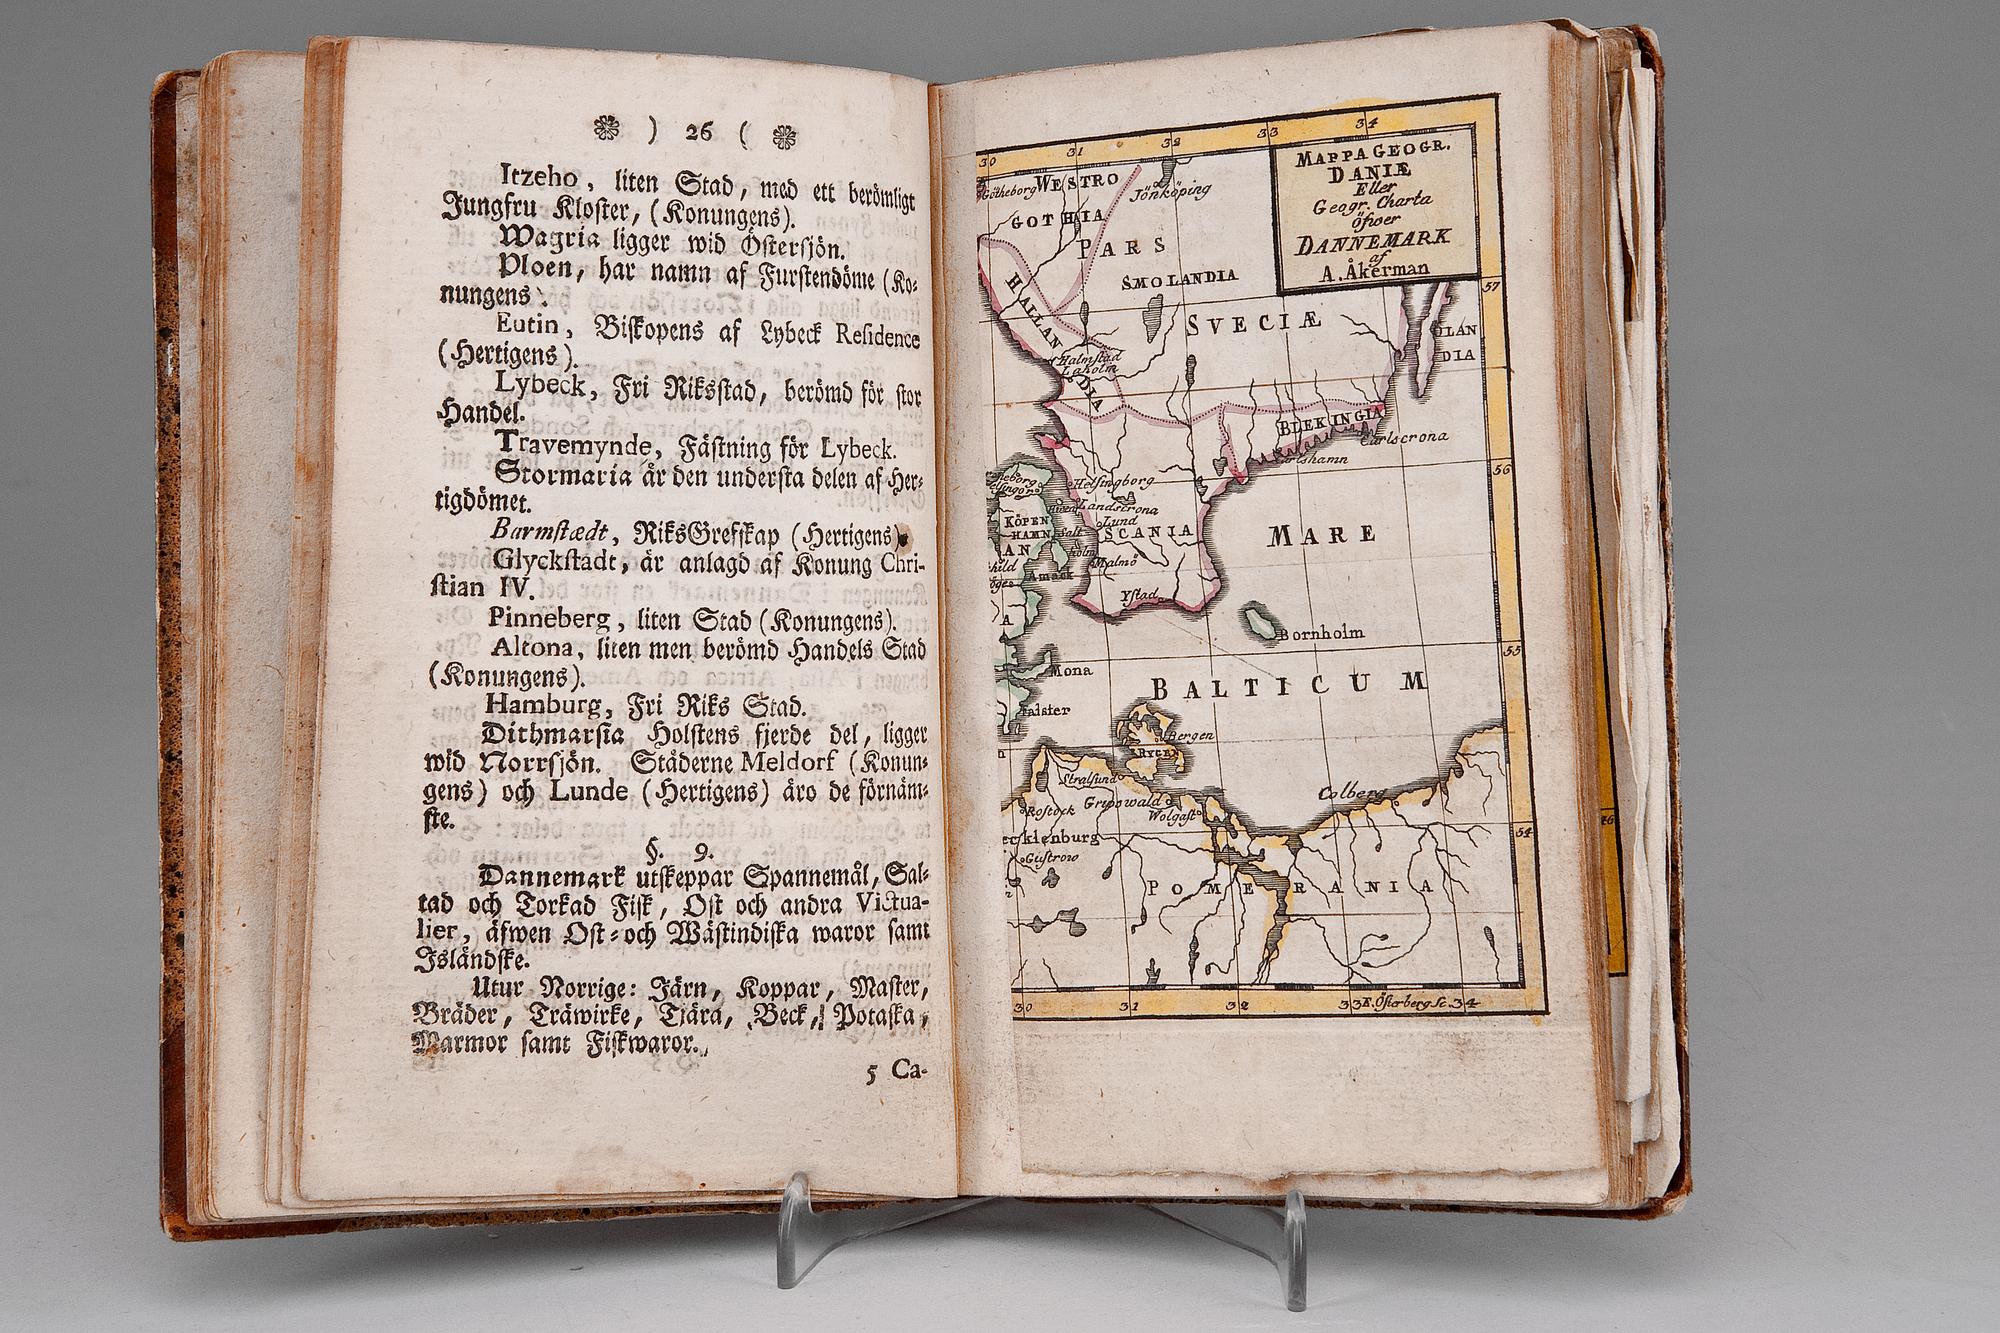 ) 26 (
Itzeho, liten Stad, med ett berömligt
Jungfru Kloster, (Konungens).
Wagria ligger wid Östersjön.
Ploen, har namn af Furstendöme (Ko-
nungens).
Eutin, Biskopens af Lybeck Residence
(Hertigens).
Lybeck, Fri Riksstad, berömd för stor
Handel.
Travemynde, Fästning för Lybeck.
Stormaria är den understa delen af Her-
tigdömet.
Barmstædt, RiksGrefskap (Hertigens)
Glyckstadt, är anlagd af Konung Chri-
stian IV.
Pinneberg, liten Stad (Konungens).
Altona, liten men berömd Handels Stad
(Konungens).
Hamburg, Fri Riks Stad.
Dithmarsia Holstens fjerde del, ligger
wid Norrsjön. Städerne Meldorf (Konun-
gens) och Lunde (Hertigens) äro de förnäm-
ste.
§. 9.
Dannemark utskeppar Spannemål, Sal-
tad och Torkad Fisk, Ost och andra Victua-
lier, äfwen Ost-och Wästindiska waror samt
Isländske.
Utur Norrige: Järn, Koppar, Master,
Bräder, Träwirke, Tjära, Beck, Potaska,
Marmor samt Fiskwaror.
5 Ca-
30 31 32 33 34
MAPPA GEOGR.
DANIÆ
Eller
Geogr. Charta
öfwer
DANNEMARK
af
A. Åkerman
Götheborg
WESTRO
GOTHIA
Jönköping
PARS
SMOLANDIA
SVECIÆ
HALLAN
DIA
Halmstad
Laholm
ÖLAN
DIA
57
BLEKINGIA
Carlscrona
Carlshamn
56
Helsingborg
Landscrona
Lund
SCANIA
Malmö
Ystad
KÖPEN
HAMN
AN
Salt
holm
Amack
MARE
Bornholm
55
Mona
BALTICUM
Falster
Bergen
RYGEN
Stralsund
Rostock
Gripswald
Wolgast
Colberg
54
ecklenburg
Gustrow
POMERANIA
30 31 32 33 E. Österberg Sc. 34
46